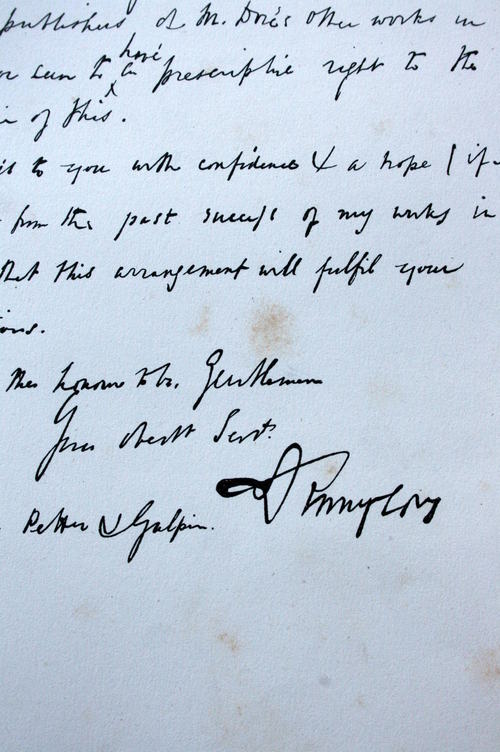 publishers of M. Doré's other works in
seem to have prescriptive right to the
of this.
to you with confidence & a hope (if
from the past success of my works in
that this arrangement will fulfil your
ions.
the honour to be, Gentlemen
Your Obedt Servt.
Petter & Galpin.
Tennyson